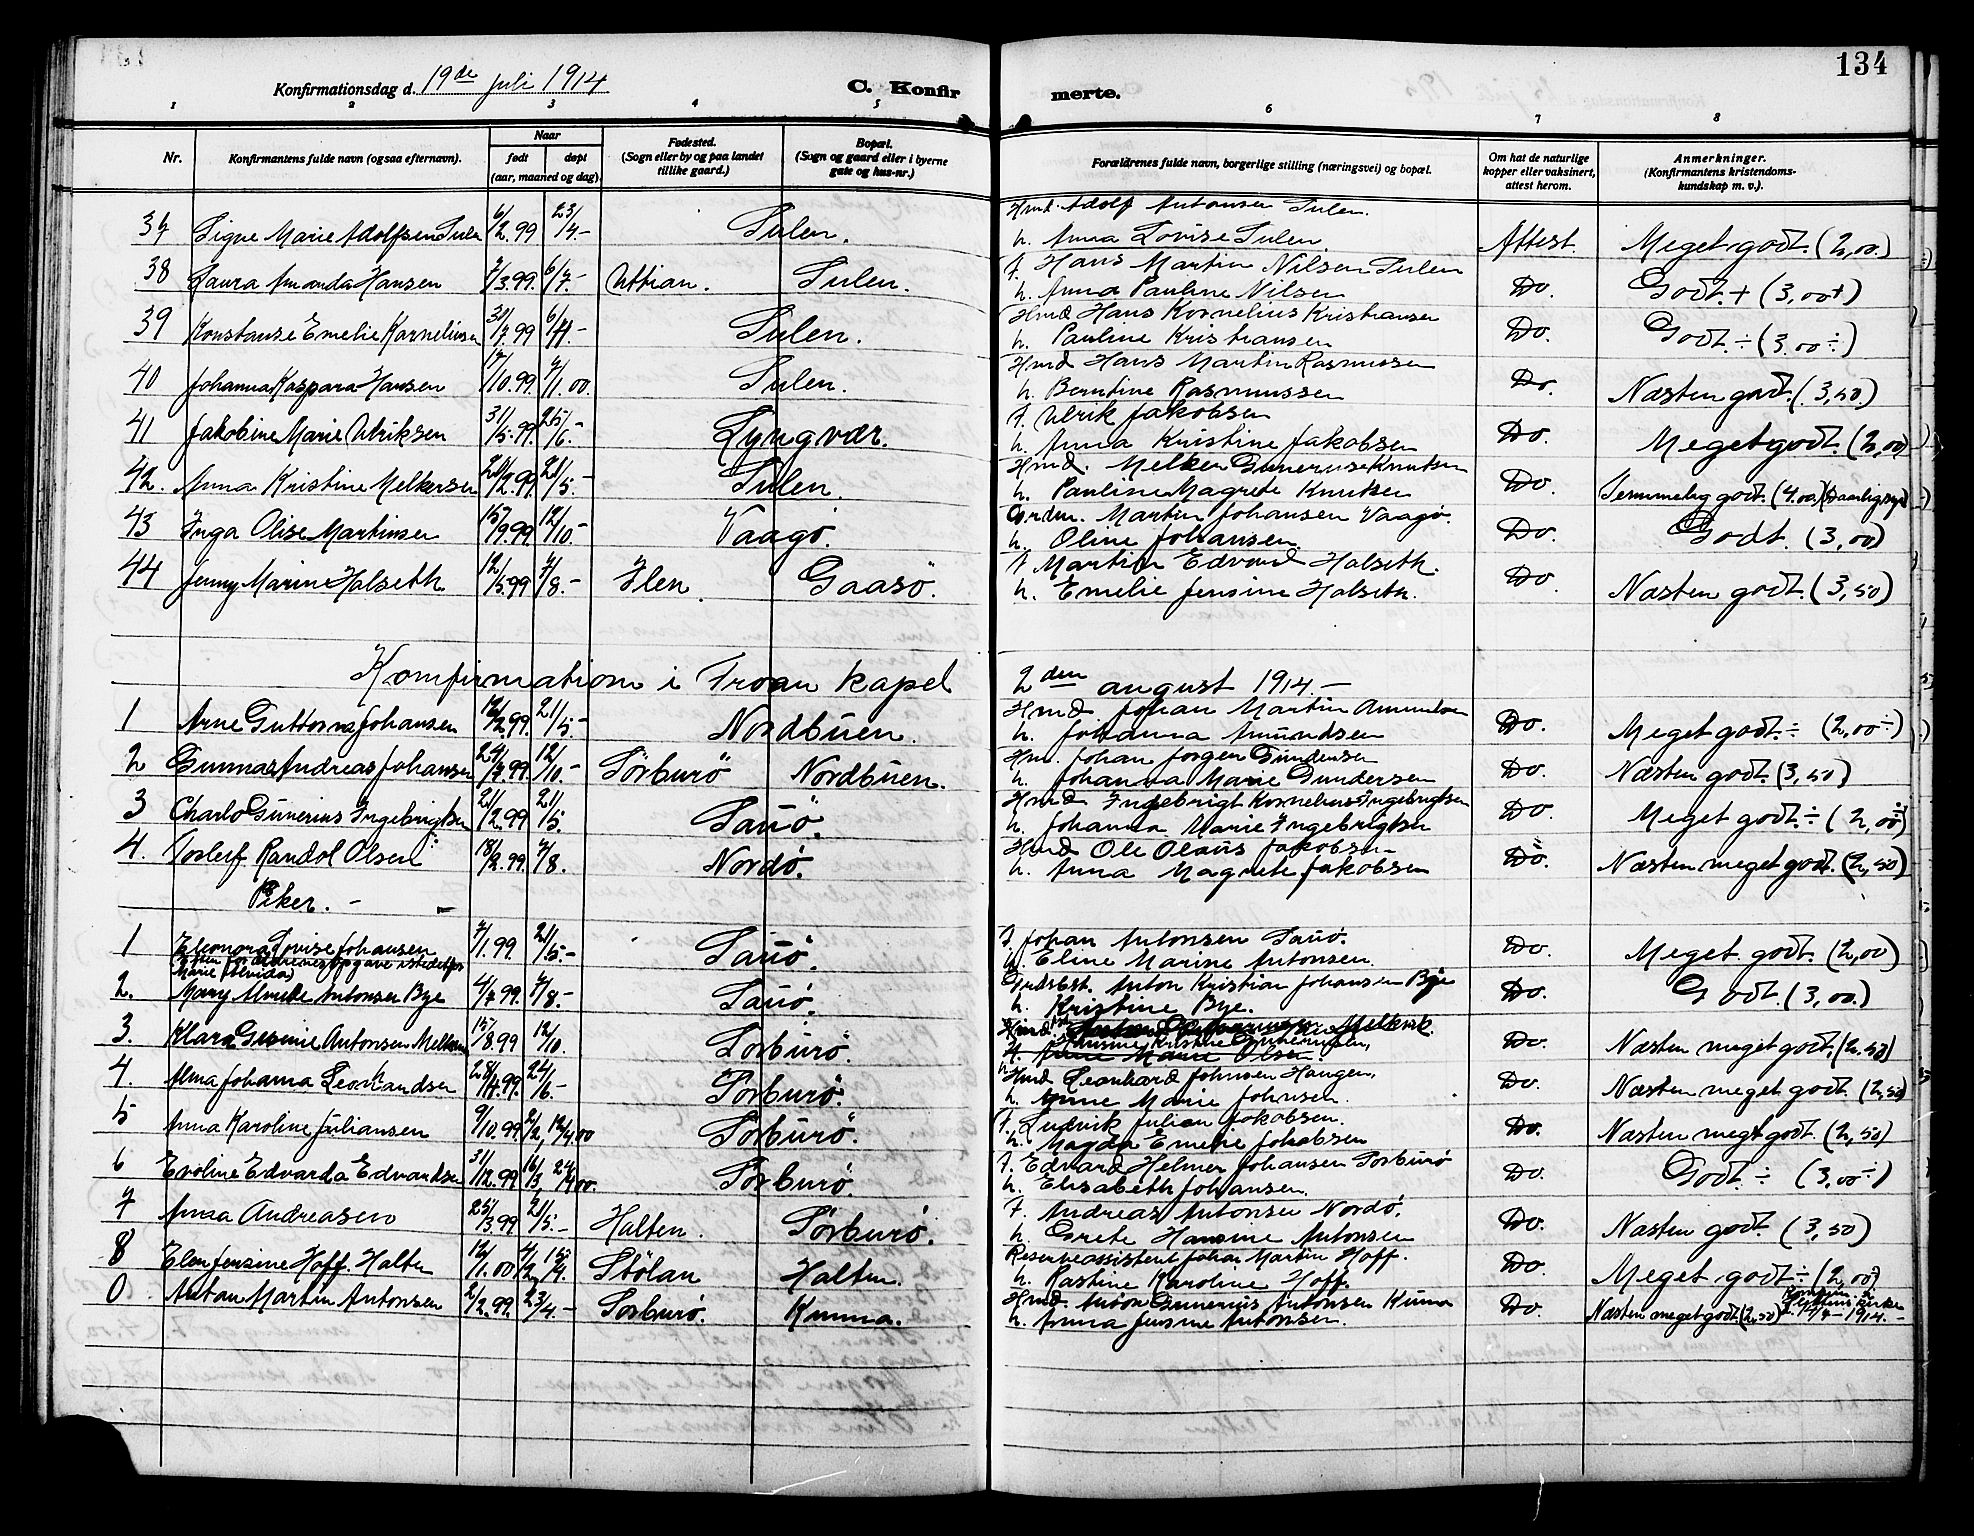 134
Konfirmationsdag d. 19de juli 1914 C. Konfirmerte.
1 2 3 4 5 6 7 8
Nr. Konfirmantens fulde navn (ogsaa efternavn). Naar født døpt (aar, maaned og dag). Fødested. (Sogn eller by og paa landet tillike gaard.) Bopæl. (Sogn og gaard eller i byerne gate og hus-nr.) Forældrenes fulde navn, borgerlige stilling (næringsvei) og bopæl. Om hat de naturlige kopper eller vaksinert, attest herom. Anmerkninger. (Konfirmantens kristendomskundskap m. v.).
37 Signe Marie Adolfsen Sulen 6/2.99 23/4.- Sulen. Hmd. Adolf Antonsen Sulen. Attest. Meget godt. (2,00.)
h. Anna Lovise Sulen.
38 Laura Amanda Hansen 7/3.99. 6/7.- Uttian. Sulen. f. Hans Martin Nilsen Sulen Do. Godt.+ (3,00+)
h. Anna Pauline Nilsen
39 Konstanse Emelie Kornelius 31/7.99 6/11- Sulen. Hmd Hans Kornelius Kristiansen Do. Godt.÷ (3.00÷)
h. Pauline Kristiansen
40 Johanna Kaspara Hansen 17/10.99. 7/1.00. Sulen. Hmd Hans Martin Rasmussen Do. Næsten godt. (3,50)
h. Berntine Rasmussen
41 Jakobine Marie Ulriksen 31/5.99. 25/6.- Lyngvær. f. Ulrik Jakobsen Do. Meget godt. (2,00)
h. Anna Kristine Jakobsen
42. Anna Kristine Melkersen 21/2.99. 21/5.- Sulen. Hmd. Melker Gunerius Knutsen Do. Temmelig godt. (4.00)
h. Pauline Magrete Knutsen
43 Inga Olise Martinsen 15/9.99. 12/10.- Vaagø. Grdm. Martin Johansen Vaagø. Do. Godt. (3,00)
h. Oline Johansen
44 Jenny Marine Halseth 12/5.99 7/8.- Ilen. Gaasø. f. Martin Edvard Halseth. Do. Næsten godt. (3,50)
h. Emelie Jensine Halseth.
Konfirmation i Froan kapel 2den august 1914.-
1 Arne Guttorm Johansen 12/2.99. 21/5.- Nordbuen. Hmd Johan Martin Amundsen Do. Meget godt.÷ (2,00÷)
h. Johanna Amundsen
2 Gunnar Andreas Johansen 24/7.99. 12/10.- Sørburø Nordbuen. Hm. Johan Jørgen Gundersen Do. Næsten godt. (3,50)
h. Johanna Marie Gundersen
3 Charlo Gunerius Ingebrigtsen 21/2.99 21/5. Sauø. Hmd Ingebrigt Kornelius Ingebrigtsen Do. Meget godt.÷ (2,00÷)
h. Johanna Marie Ingebrigtsen
4. Torleif Randol Olsen 18/2.99. 7/8. Nordø. Hmd Ole Olaus Jakobsen- Do. Næsten meget godt. (2,50)
h. Anna Magrete Jakobsen
Piker. -
1 Eleonora Lovise Johansen 7/1.99 21/5.- Sauø. f. Johan Antonsen Sauø. Do. Meget godt. (2,00)
(Efter forældrenes opgave istedetfor Marie Alvida) h. Eline Marine Antonsen.
2. Mary Alvilde Antonsen Bye 4/7.99. 7/8.- Sauø. Grdbst. Anton Kristian Johansen Bye Do. Godt. (3,00.)
h. Kristine Bye.
3. Klara Gusinie Antonsen Melken 15/8.99 12/10. Sørburø. Hmd. Melkvik. Do. Næsten meget godt. (2.50)
h. Anne Marie Olsen
4. Alma Johanna Leonhardsen 28/4.99. 24/6.- Sørburø. Hmd Leonhard Johnsen Haugen, Do. Næsten meget godt. (2,50)
h. Anne Marie Johnsen.
5 Anna Karoline Juliansen 9/10.99. 2/2, 12/4.00 Sørburø. f. Ludvik Julian Jakobsen. Do. Næsten meget godt. (2,50)
h. Magda Emelie Jakobsen
6 Evoline Edvarda Edvardsen 31/12.99 16/3 24/4.00. Sørburø. f. Edvard Helmer Johansen Sørburø Do. Godt.÷ (3,00÷)
h. Elisabeth Johansen.
7 Anna Andreasen 25/3.99 21/5.- Halten. Sørburø. f. Andreas Antonsen Nordø. Do. Næsten godt. (3,50)
h. Grete Hansine Antonsen
8 Elen Jensine Hoff. Halten 12/1.00 4/2, 15/4. Stølan Halten. Reserveassistent Johan Martin Hoff. Do. Meget godt÷ (2,00÷)
h. Pastine Karoline Hoff.
0 Antan Martin Antonsen 2/2.99. 23/4.- Sørburø. Kunna. Hmd. Anton Gunerius Antonsen Kunna Do. Næsten meget godt. (2,50) 1914.-
h. Anna Jensine Antonsen.